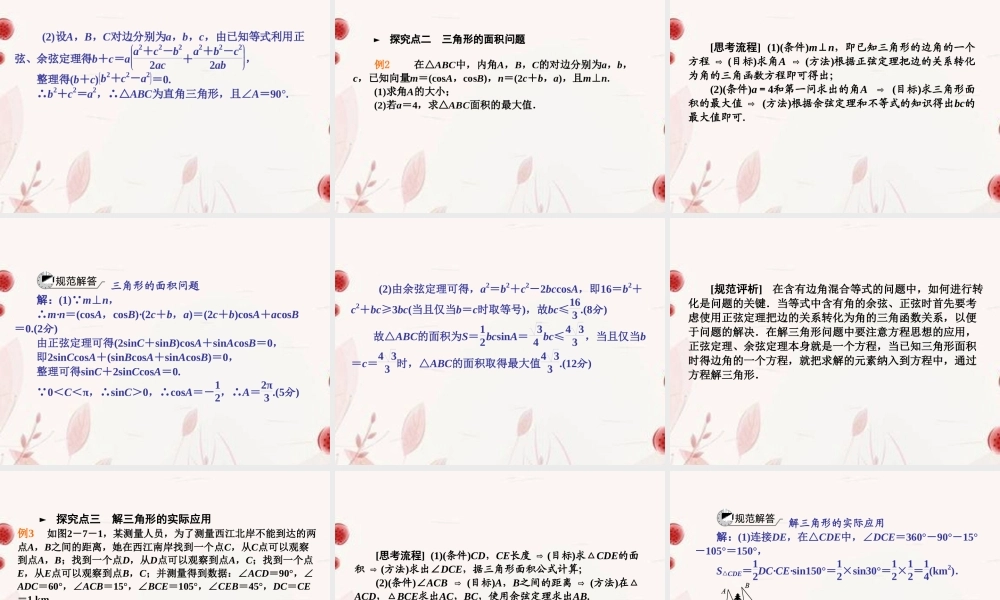 (2)设A，B，C对边分别为a，b，c，由已知等式利用正
弦、余弦定理得b＋c＝a(a²＋c²－b²/2ac＋a²＋b²－c²/2ab)，
整理得(b＋c)(b²＋c²－a²)＝0.
∴b²＋c²＝a²，∴△ABC为直角三角形，且∠A＝90°.
► 探究点二　三角形的面积问题
例2　在△ABC中，内角A，B，C的对边分别为a，b，
c，已知向量m＝(cosA，cosB)，n＝(2c＋b，a)，且m⊥n.
(1)求角A的大小；
(2)若a＝4，求△ABC面积的最大值．
[思考流程] (1)(条件)m⊥n，即已知三角形的边角的一个
方程 ⇨ (目标)求角A ⇨ (方法)根据正弦定理把边的关系转化
为角的三角函数方程即可得出；
(2)(条件)a＝4和第一问求出的角A ⇨ (目标)求三角形面
积的最大值 ⇨ (方法)根据余弦定理和不等式的知识得出bc的
最大值即可．
规范解答 三角形的面积问题
解：(1)∵m⊥n，
∴m·n＝(cosA，cosB)·(2c＋b，a)＝(2c＋b)cosA＋acosB
＝0.(2分)
由正弦定理可得(2sinC＋sinB)cosA＋sinAcosB＝0，
即2sinCcosA＋(sinBcosA＋sinAcosB)＝0，
整理可得sinC＋2sinCcosA＝0.
∵0＜C＜π，∴sinC＞0，∴cosA＝－1/2，∴A＝2π/3.(5分)
(2)由余弦定理可得，a²＝b²＋c²－2bccosA，即16＝b²＋
c²＋bc≥3bc(当且仅当b＝c时取等号)，故bc≤16/3.(8分)
故△ABC的面积为S＝1/2bcsinA＝3/4bc≤4 3/3，当且仅当b
＝c＝4 3/3时，△ABC的面积取得最大值4 3/3.(12分)
[规范评析]　在含有边角混合等式的问题中，如何进行转
化是问题的关键．当等式中含有角的余弦、正弦时首先要考
虑使用正弦定理把边的关系转化为角的三角函数关系，以便
于问题的解决．在解三角形问题中要注意方程思想的应用，
正弦定理、余弦定理本身就是一个方程，当已知三角形面积
时得边角的一个方程，就把求解的元素纳入到方程中，通过
方程解三角形．
► 探究点三　解三角形的实际应用
例3　如图2－7－1，某测量人员，为了测量西江北岸不能到达的两
点A，B之间的距离，她在西江南岸找到一个点C，从C点可以观察
到点A，B；找到一个点D，从D点可以观察到点A，C；找到一个点
E，从E点可以观察到点B，C；并测量得到数据：∠ACD＝90°，∠
ADC＝60°，∠ACB＝15°，∠BCE＝105°，∠CEB＝45°，DC＝CE
＝1 km.
[思考流程] (1)(条件)CD，CE长度 ⇨ (目标)求△CDE的面
积 ⇨ (方法)求出∠DCE，据三角形面积公式计算；
(2)(条件)∠ACB ⇨ (目标)A，B之间的距离 ⇨ (方法)在△
ACD，△BCE求出AC，BC，使用余弦定理求出AB.
规范解答 解三角形的实际应用
解：(1)连接DE，在△CDE中，∠DCE＝360°－90°－15°
－105°＝150°，
S△CDE＝1/2DC·CE·sin150°＝1/2×sin30°＝1/2×1/2＝1/4(km²)．
A B